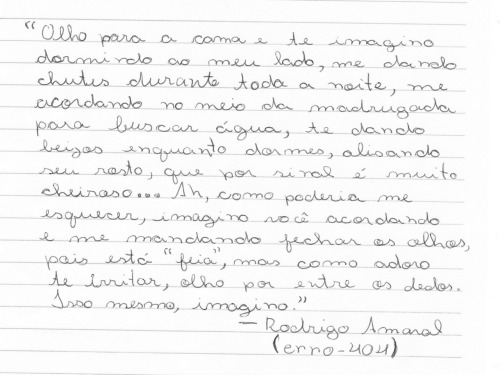 "Olho para a cama e te imagino
dormindo ao meu lado, me dando
chutes durante toda a noite, me
acordando no meio da madrugada
para buscar água, te dando
beijos enquanto dormes, alisando
seu rosto, que por sinal é muito
cheiroso... Ah, como poderia me
esquecer, imagino você acordando
e me mandando fechar os olhos,
pois está "feia", mas como adoro
te irritar, olho por entre os dedos.
Isso mesmo, imagino."
— Rodrigo Amaral
(erro-404)